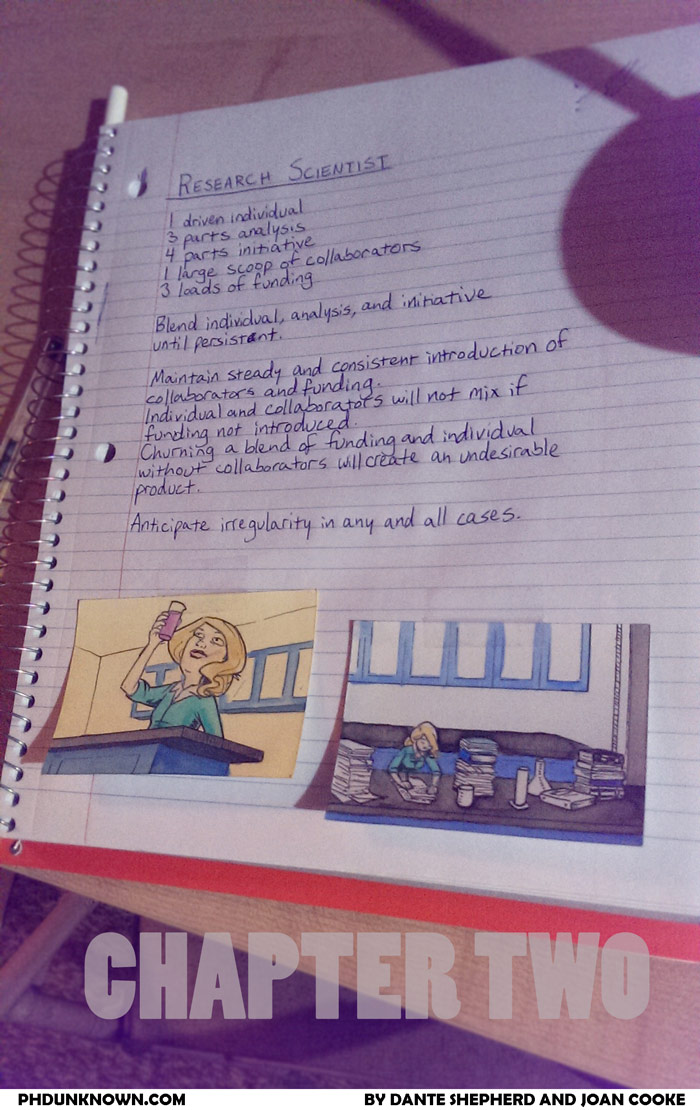 RESEARCH SCIENTIST
1 driven individual
3 parts analysis
4 parts initiative
1 large scoop of collaborators
3 loads of funding
Blend individual, analysis, and initiative
until persistent.
Maintain steady and consistent introduction of
collaborators and funding.
Individual and collaborators will not mix if
funding not introduced.
Churning a blend of funding and individual
without collaborators will create an undesirable
product.
Anticipate irregularity in any and all cases.
CHAPTER TWO
PHDUNKNOWN.COM
BY DANTE SHEPHERD AND JOAN COOKE